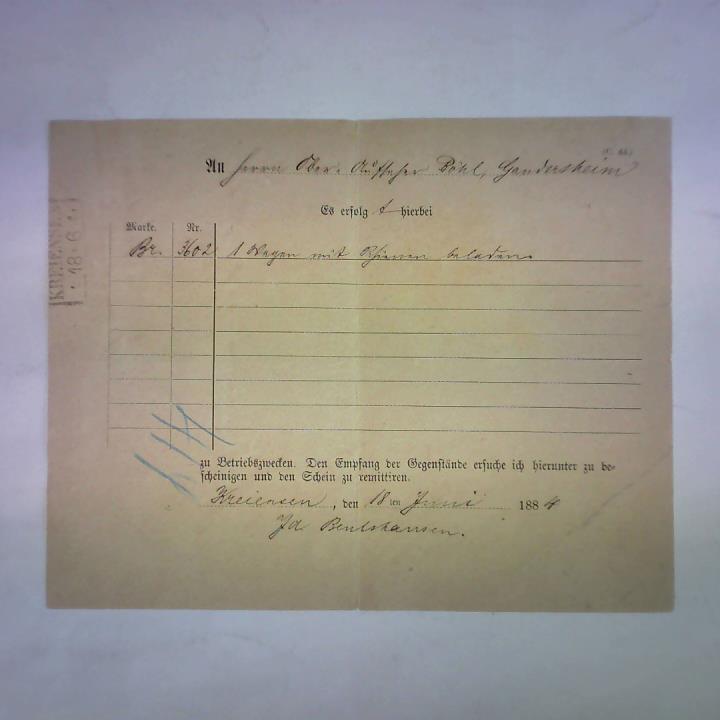 An Herrn Ober-Aufseher Pöhl, Gandersheim
Es erfolgt hierbei
Marke. Nr.
Br. 3602 1 Wagen mit Schienen beladen.
zu Betriebszwecken. Den Empfang der Gegenstände ersuche ich hierunter zu be-
scheinigen und den Schein zu remittiren.
Kreiensen, den 18ten Juni 1884
KREIENSEN
18 6